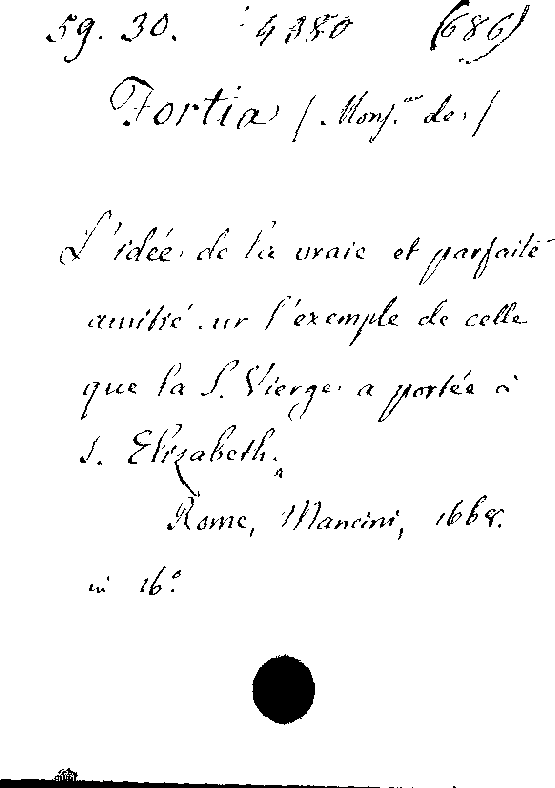 59. 30. 4380 (686)
Fortia (Monsr de)
L'idée de la vraie et parfaite
amitié sur l'exemple de celle
que la S. Vierge a portée à
S. Elizabeth.
Rome, Mancini, 1668.
in 16º.